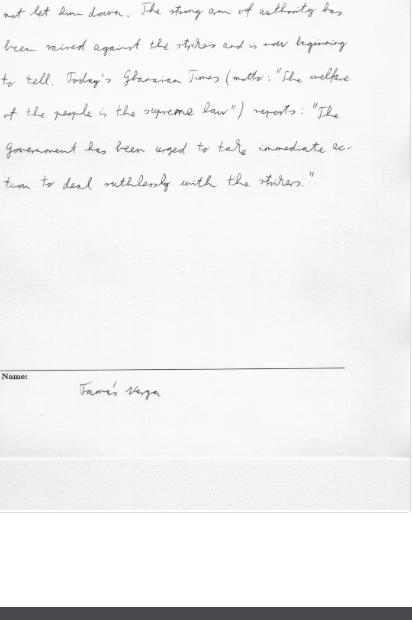 not let him down. The strong arm of authority has
been raised against the strikes and is now beginning
to tell. Today's Ghanaian Times (motto: "The welfare
of the people is the supreme law") reports: "The
Government has been urged to take immediate ac-
tion to deal ruthlessly with the strikers."
Name:
Tamás Varga